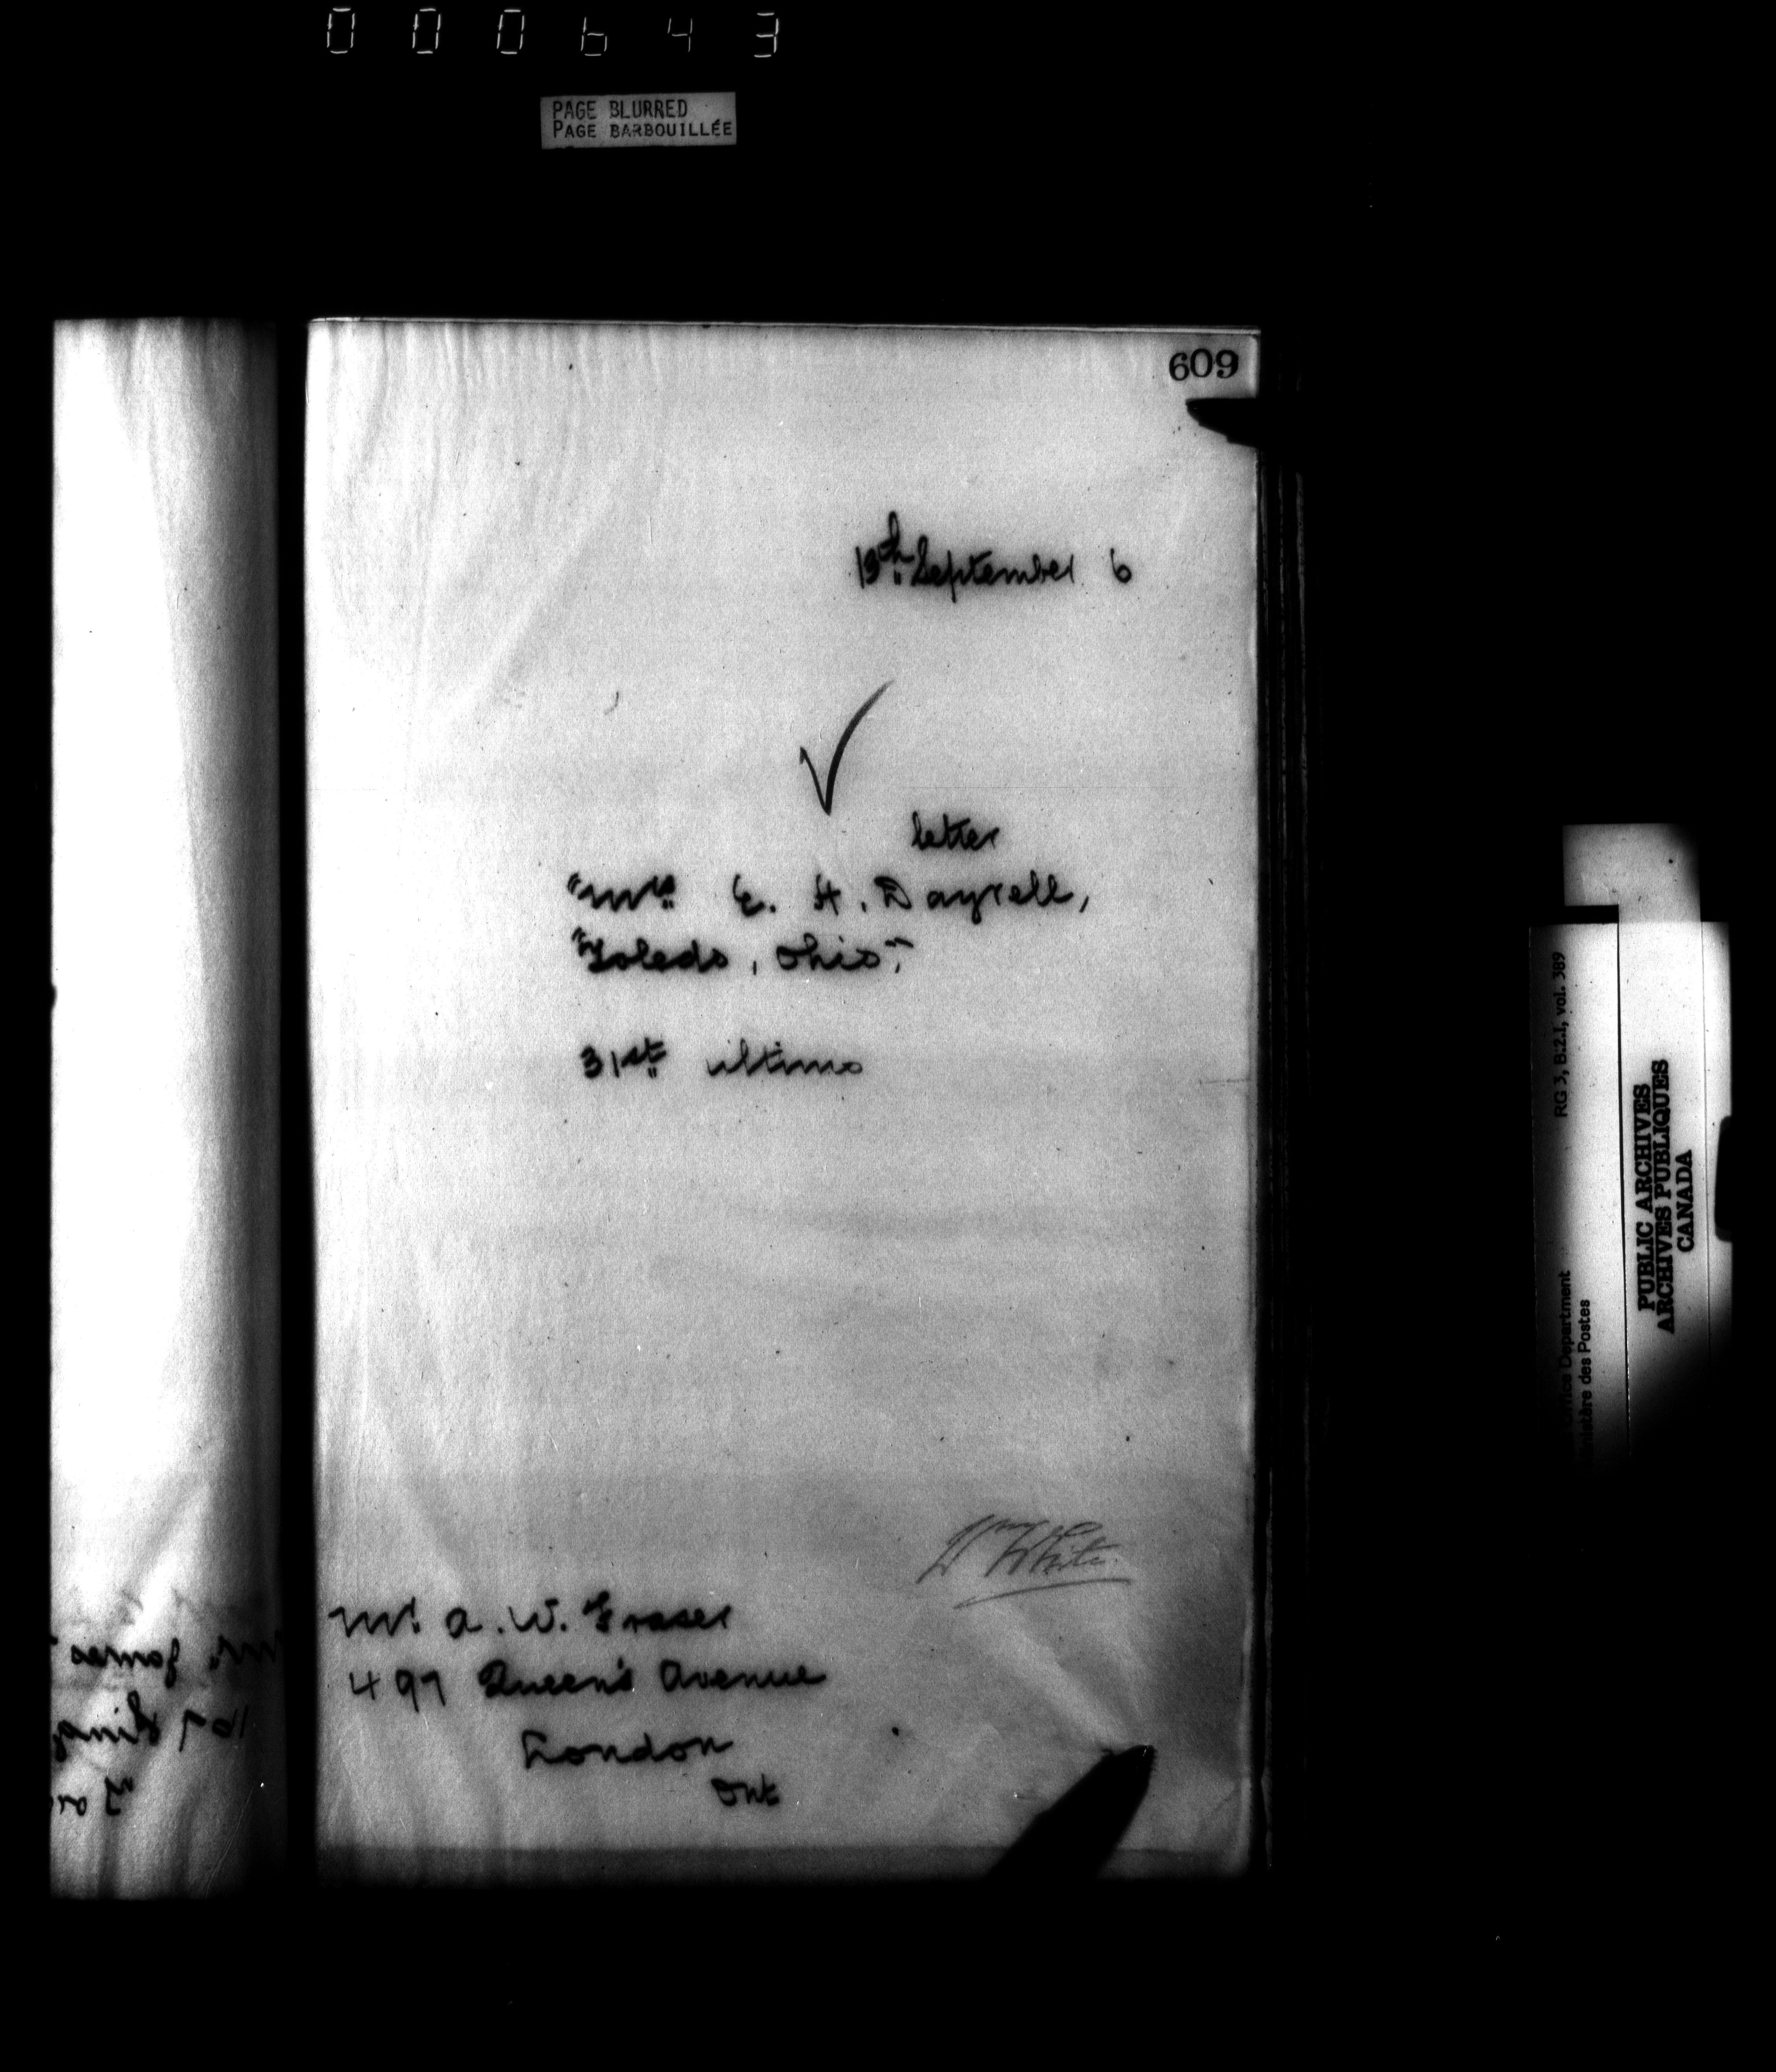 000643
PAGE BLURRED
PAGE BARBOUILLÉE
609
13th September 6
letter
"Mrs E. H. Dayrell,
"Toledo, Ohio",
31st ultimo
Wm White
Mr. A. W. Fraser
497 Queen's Avenue
London
Ont
Mr. James
107 King
RG 3, B.2.1, vol. 389
Office Department
Ministère des Postes
PUBLIC ARCHIVES
ARCHIVES PUBLIQUES
CANADA